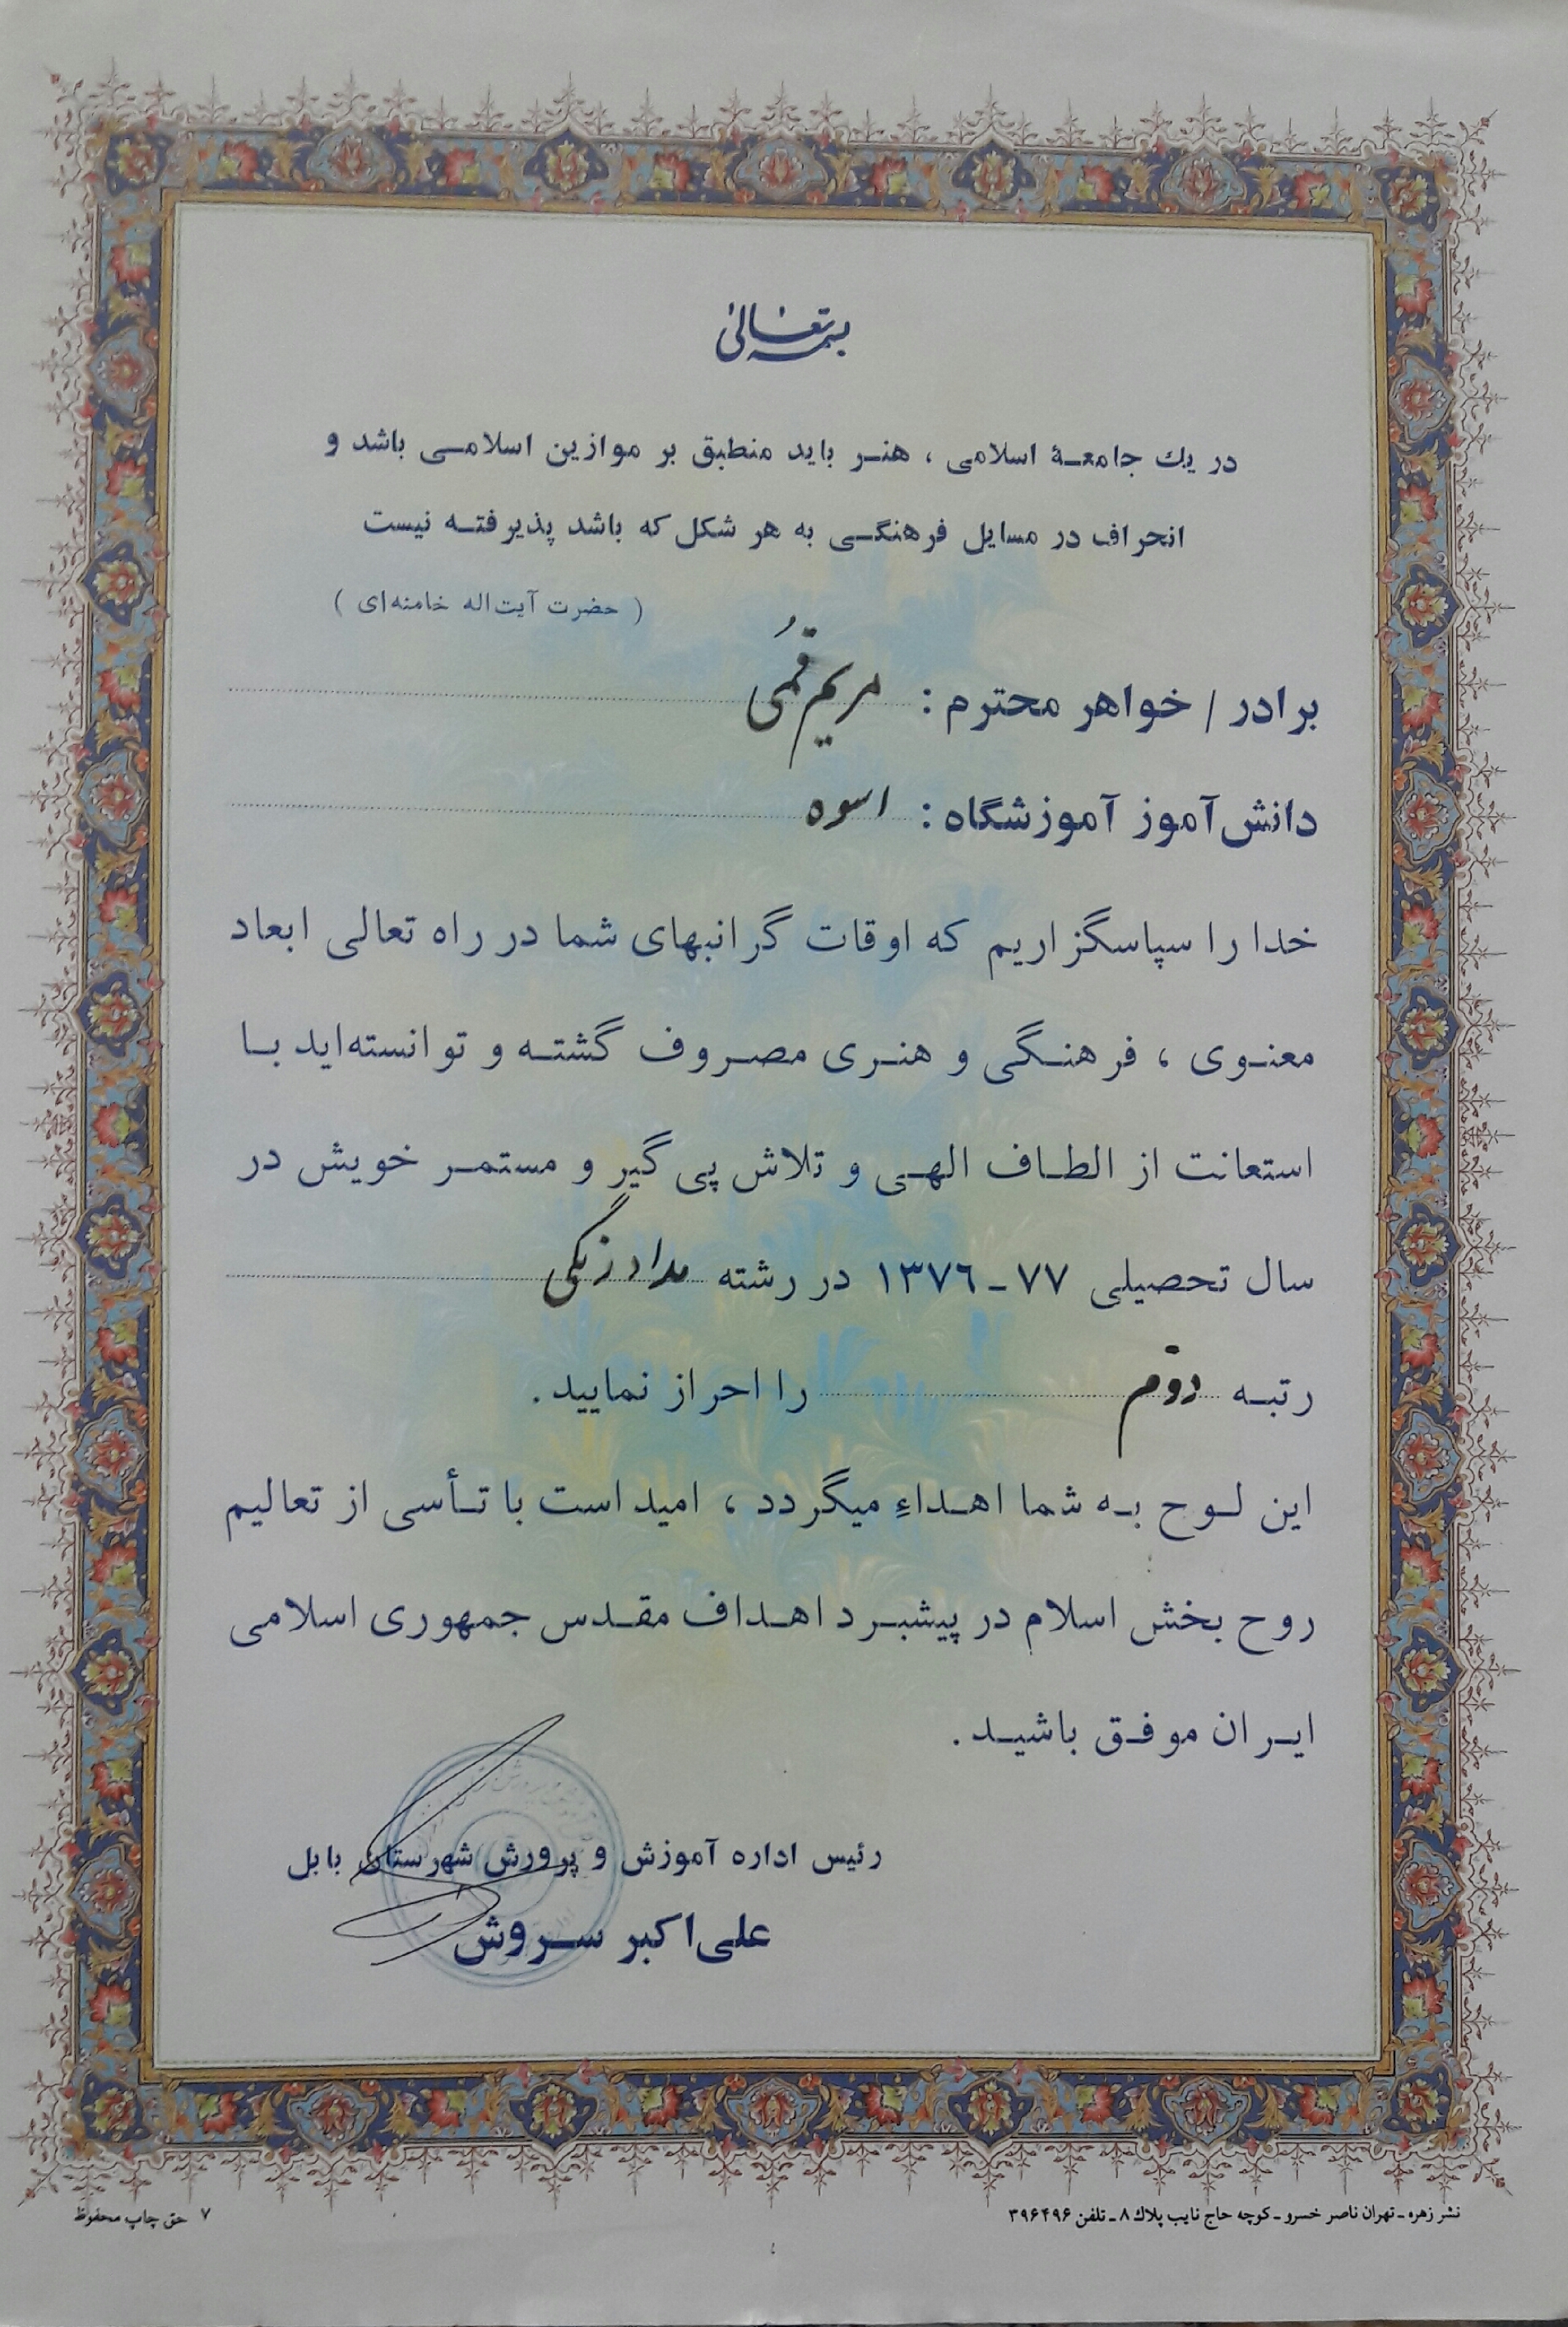 بسمه تعالی
در یک جامعهٔ اسلامی ، هنر باید منطبق بر موازین اسلامی باشد و
انحراف در مسایل فرهنگی به هر شکل که باشد پذیرفته نیست
( حضرت آیت‌اله خامنه‌ای )
برادر / خواهر محترم : مریم قُمی
دانش‌آموز آموزشگاه : اسوه
خدا را سپاسگزاریم که اوقات گرانبهای شما در راه تعالی ابعاد
معنوی ، فرهنگی و هنری مصروف گشته و توانسته‌اید با
استعانت از الطاف الهی و تلاش پی گیر و مستمر خویش در
سال تحصیلی ۷۷ـ۱۳۷٦ در رشته مداد رنگی
رتبه دوّم را احراز نمایید .
این لوح به شما اهداءِ میگردد ، امید است با تأسی از تعالیم
روح بخش اسلام در پیشبرد اهداف مقدس جمهوری اسلامی
ایران موفق باشید .
رئیس اداره آموزش و پرورش شهرستان بابل
علی‌اکبر سروش
نشر زهره ـ تهران ناصر خسرو ـ کوچه حاج نایب پلاک ۸ ـ تلفن ۳۹۶۴۹۶
۷ حق چاپ محفوظ